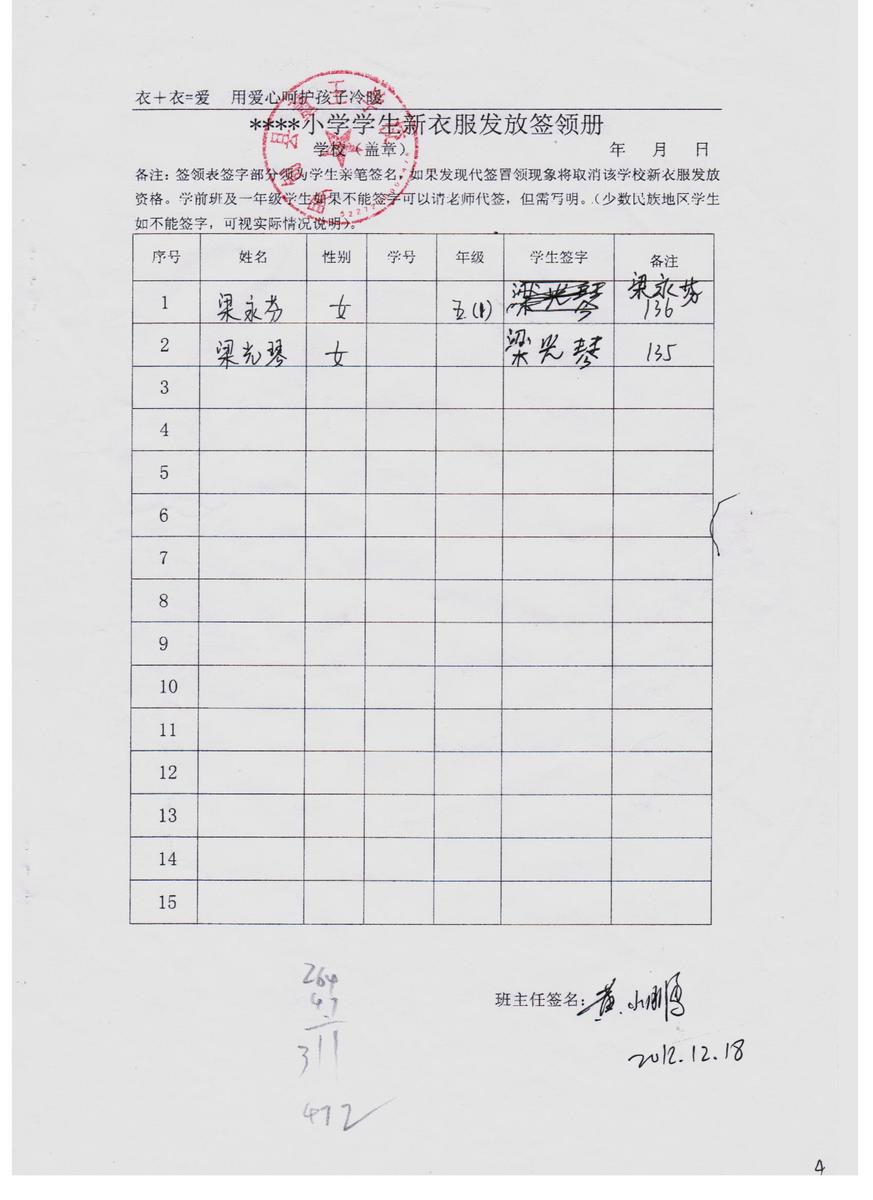 衣+衣=爱 用爱心呵护孩子冷暖
****小学学生新衣服发放签领册
学校(盖章) 年 月 日
备注:签领表签字部分须为学生亲笔签名,如果发现代签冒领现象将取消该学校新衣服发放
资格。学前班及一年级学生如果不能签字可以请老师代签,但需写明。(少数民族地区学生
如不能签字,可视实际情况说明)。
序号 姓名 性别 学号 年级 学生签字 备注
梁永芬
1 梁永芬 女 五(1) 梁光琴 136
2 梁光琴 女 梁光琴 135
3
4
5
6
7
8
9
10
11
12
13
14
15
264
47
311
472
班主任签名:黄小鹏
2012.12.18
4